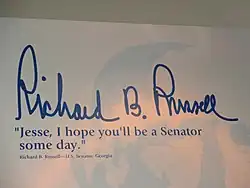 Richard B. Russell
"Jesse, I hope you'll be a Senator
some day."
Richard B. Russell—U.S. Senator, Georgia